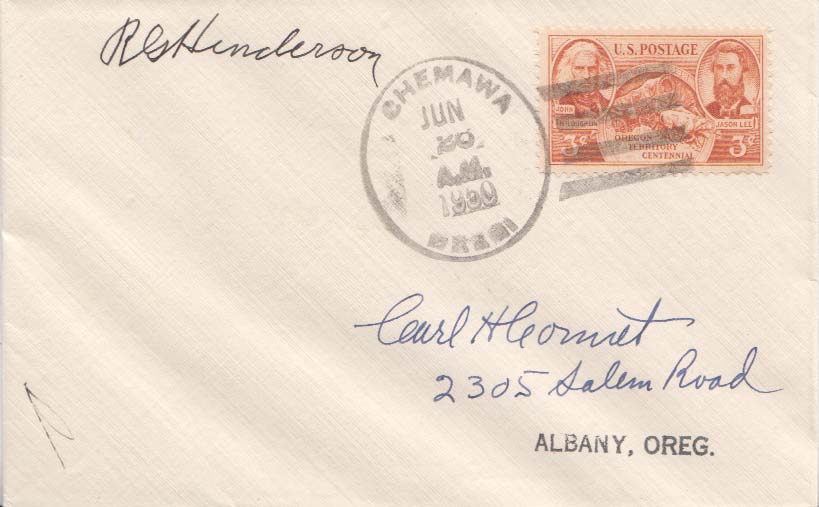 R G Henderson
CHEMAWA
JUN
A.M.
1950
OREG.
U.S. POSTAGE
JOHN McLOUGHLIN
JASON LEE
3¢ OREGON TERRITORY CENTENNIAL 3¢
Carl H Cornet
2305 Salem Road
ALBANY, OREG.